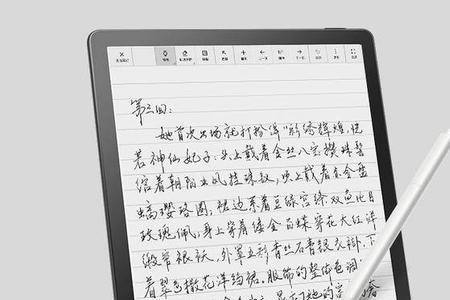 第三回:
她首次出场就打扮得"彩绣辉煌,恍
若神仙妃子,头上戴着金丝八宝攒珠髻
绾着朝阳五凤挂珠钗,项上戴着赤金盘
螭璎珞圈,裙边系着豆绿宫绦双鱼比目
玫瑰佩,身上穿着缕金百蝶穿花大红洋
缎窄裉袄,外罩五彩刻丝石青银鼠褂,下
着翡翠撒花洋绉裙。服饰的整体色调